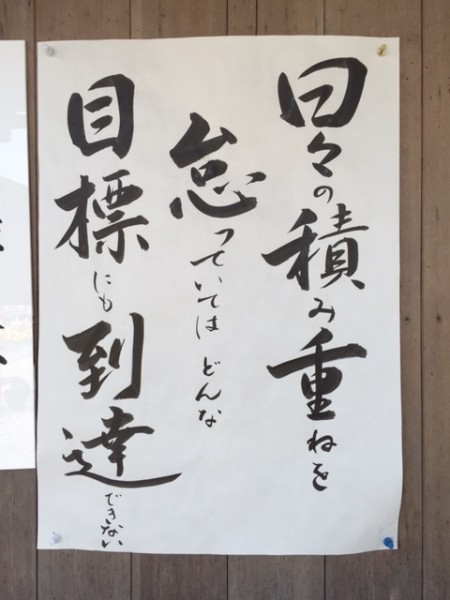 日々の積み重ねを
怠っていてはどんな
目標にも到達できない